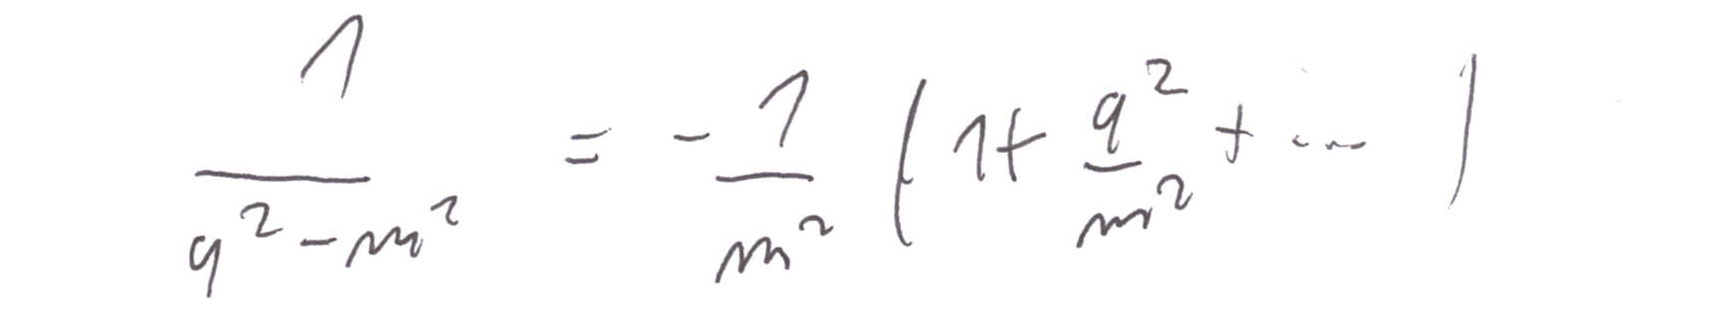 \frac{1}{q^2 - m^2} = -\frac{1}{m^2} \left( 1 + \frac{q^2}{m^2} + \dots \right)